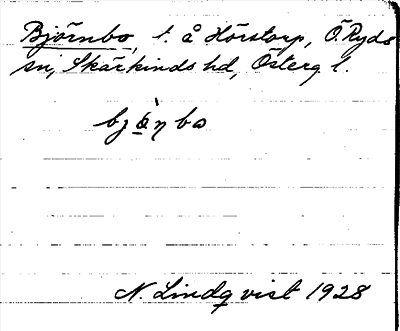 Björnbo, t. å Hörstorp, Ö. Ryds
sn, Skärkinds hd, Österg l.
bjò̱ŋbo
N. Lindqvist 1928